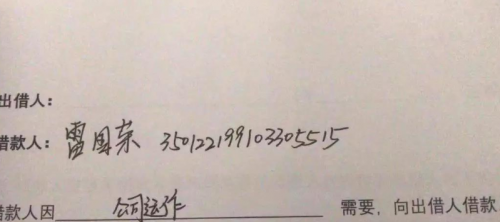 出借人：
借款人：雷国荣 350122199103305515
借款人因 公司运作 需要，向出借人借款